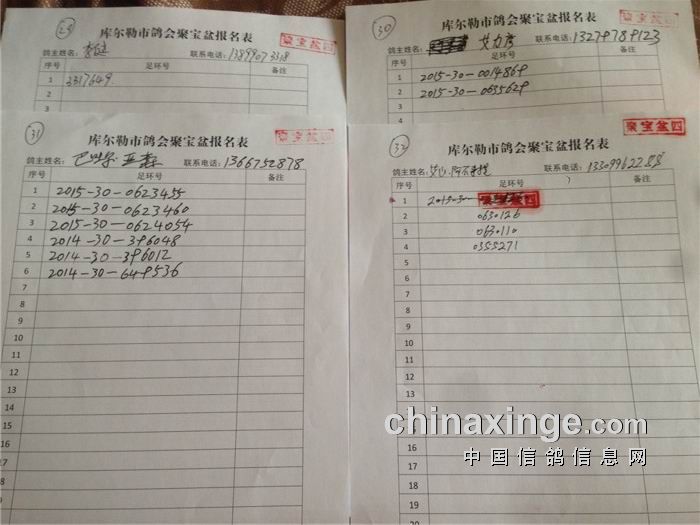 29
聚宝盆四
库尔勒市鸽会聚宝盆报名表
鸽主姓名: 联系电话: 13899073318
序号 足环号 备注
1 3317649
2
3
30
聚宝盆四
库尔勒市鸽会聚宝盆报名表
鸽主姓名: 艾力 联系电话: 13279789123
序号 足环号 备注
1 2015-30-0014869
2 2015-30-0655629
3
4
31
聚宝盆四
库尔勒市鸽会聚宝盆报名表
鸽主姓名: 联系电话: 1366752878
序号 足环号 备注
1 2015-30-0623455
2 2015-30-0623460
3 2015-30-0624054
4 2014-30-396048
5 2014-30-396012
6 2014-30-649536
7
8
9
10
11
12
13
14
15
16
17
18
19
20
32
聚宝盆四
库尔勒市鸽会聚宝盆报名表
鸽主姓名: 联系电话:
序号 足环号 备注
1 2015-30- 聚宝盆四
2 0630126
3 0630110
4 0355271
5
6
7
8
9
10
11
12
13
14
15
16
17
18
19
20
chinaxinge.com
中国信鸽信息网